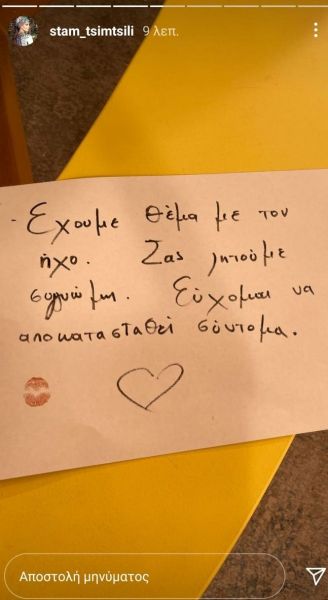 stam_tsimtsili 9 λεπ.
- Έχουμε θέμα με τον
ήχο. Σας ζητούμε
συγγνώμη. Εύχομαι να
αποκατασταθεί σύντομα.
Αποστολή μηνύματος